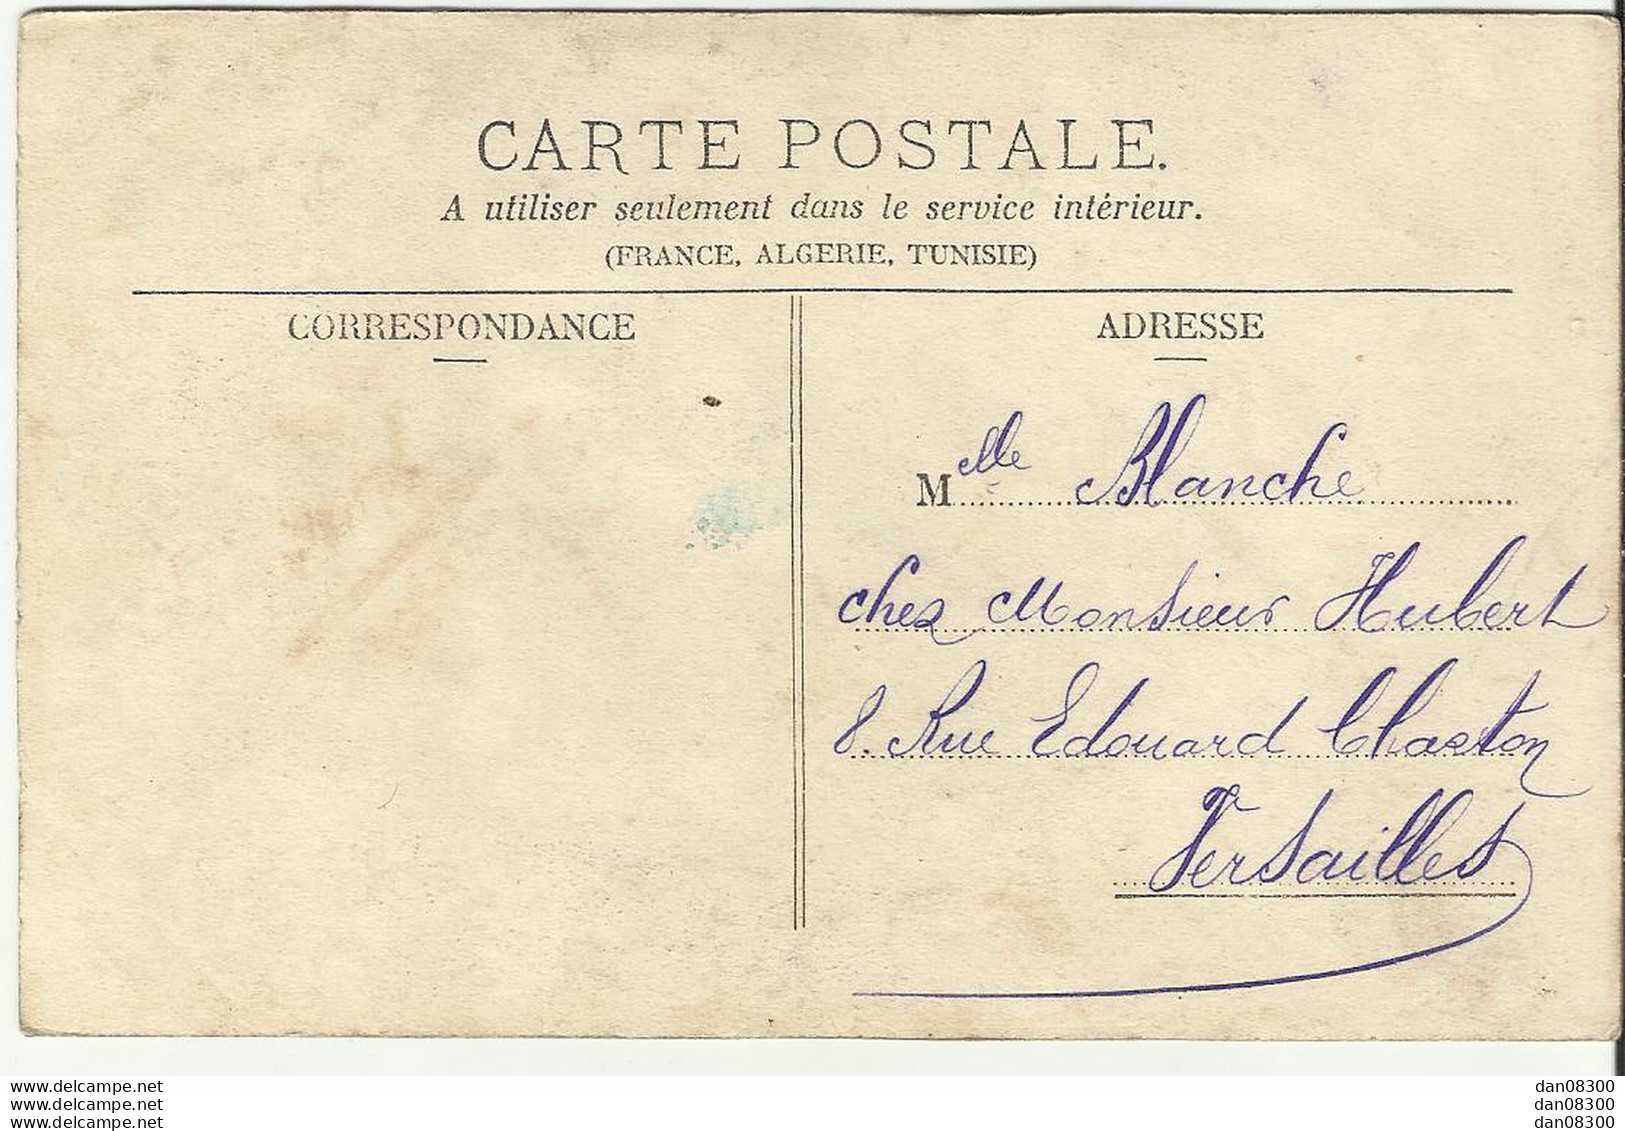 CARTE POSTALE.
A utiliser seulement dans le service intérieur.
(FRANCE, ALGERIE, TUNISIE)
CORRESPONDANCE
ADRESSE
Melle Blanche
chez Monsieur Hubert
8. Rue Edouard Chaston
Versailles
www.delcampe.net
www.delcampe.net
www.delcampe.net
dan08300
dan08300
dan08300